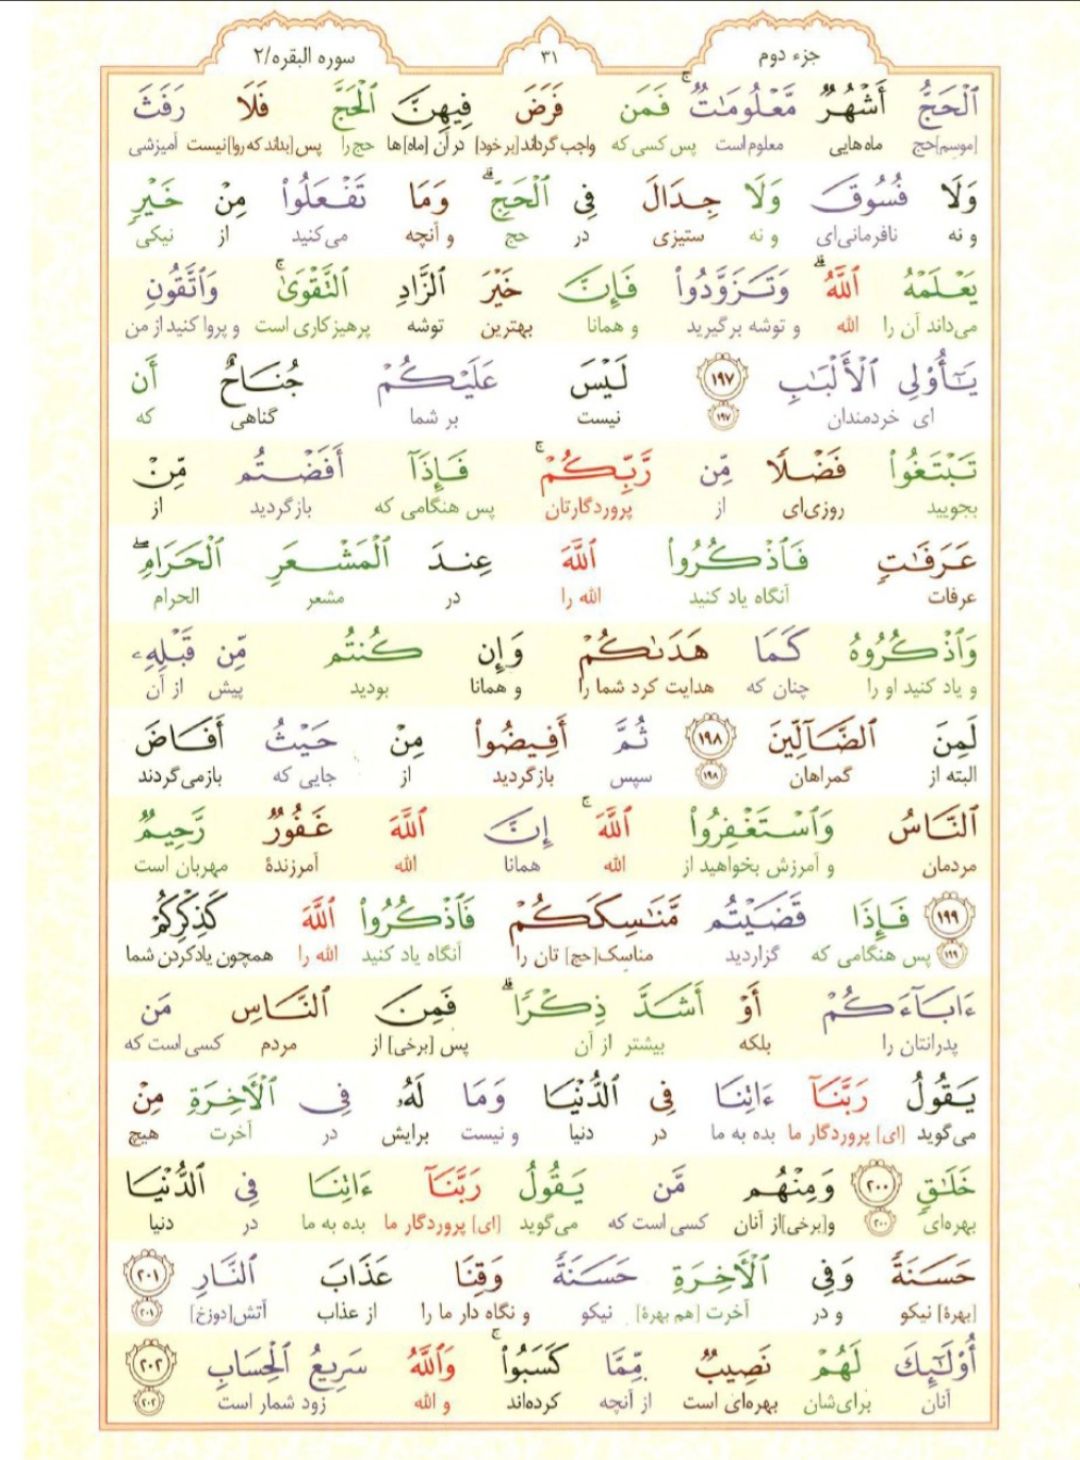 جزء دوم ۳۱ سوره البقره/۲
ٱلۡحَجُّ أَشۡهُرٌ مَّعۡلُومَٰتٌۚ فَمَن فَرَضَ فِيهِنَّ ٱلۡحَجَّ فَلَا رَفَثَ
[موسم]حج ماه‌هایی معلوم است پس کسی که واجب گرداند[بر خود] در آن [ماه]ها حج را پس [بداند که روا]نیست آمیزشی
وَلَا فُسُوقَ وَلَا جِدَالَ فِي ٱلۡحَجِّۗ وَمَا تَفۡعَلُواْ مِنۡ خَيۡرٖ
و نه نافرمانی‌ای و نه ستیزی در حج و آنچه می‌کنید از نیکی
يَعۡلَمۡهُ ٱللَّهُۗ وَتَزَوَّدُواْ فَإِنَّ خَيۡرَ ٱلزَّادِ ٱلتَّقۡوَىٰۚ وَٱتَّقُونِ
می‌داند آن را الله و توشه برگیرید و همانا بهترین توشه پرهیزکاری است و پروا کنید از من
يَٰٓأُوْلِي ٱلۡأَلۡبَٰبِ ۱۹۷ لَيۡسَ عَلَيۡكُمۡ جُنَاحٌ أَن
ای خردمندان ۱۹۷ نیست بر شما گناهی که
تَبۡتَغُواْ فَضۡلٗا مِّن رَّبِّكُمۡۚ فَإِذَآ أَفَضۡتُم مِّنۡ
بجویید روزی‌ای از پروردگارتان پس هنگامی که بازگردید از
عَرَفَٰتٖ فَٱذۡكُرُواْ ٱللَّهَ عِندَ ٱلۡمَشۡعَرِ ٱلۡحَرَامِۖ
عرفات آنگاه یاد کنید الله را در مشعر الحرام
وَٱذۡكُرُوهُ كَمَا هَدَىٰكُمۡ وَإِن كُنتُم مِّن قَبۡلِهِۦ
و یاد کنید او را چنان که هدایت کرد شما را و همانا بودید پیش از آن
لَمِنَ ٱلضَّآلِّينَ ۱۹۸ ثُمَّ أَفِيضُواْ مِنۡ حَيۡثُ أَفَاضَ
البته از گمراهان ۱۹۸ سپس بازگردید از جایی که بازمی‌گردند
ٱلنَّاسُ وَٱسۡتَغۡفِرُواْ ٱللَّهَۚ إِنَّ ٱللَّهَ غَفُورٌ رَّحِيمٌ
مردمان و آمرزش بخواهید از الله همانا الله آمرزندهٔ مهربان است
۱۹۹ فَإِذَا قَضَيۡتُم مَّنَٰسِكَكُمۡ فَٱذۡكُرُواْ ٱللَّهَ كَذِكۡرِكُمۡ
۱۹۹ پس هنگامی که گزاردید مناسک[حج] تان را آنگاه یاد کنید الله را همچون یادکردن شما
ءَابَآءَكُمۡ أَوۡ أَشَدَّ ذِكۡرٗاۗ فَمِنَ ٱلنَّاسِ مَن
پدرانتان را بلکه بیشتر از آن پس [برخی] از مردم کسی است که
يَقُولُ رَبَّنَآ ءَاتِنَا فِي ٱلدُّنۡيَا وَمَا لَهُۥ فِي ٱلۡأٓخِرَةِ مِنۡ
می‌گوید [ای] پروردگار ما بده به ما در دنیا و نیست برایش در آخرت هیچ
خَلَٰقٖ ۲۰۰ وَمِنۡهُم مَّن يَقُولُ رَبَّنَآ ءَاتِنَا فِي ٱلدُّنۡيَا
بهره‌ای ۲۰۰ و[برخی]از آنان کسی است که می‌گوید [ای] پروردگار ما بده به ما در دنیا
حَسَنَةٗ وَفِي ٱلۡأٓخِرَةِ حَسَنَةٗ وَقِنَا عَذَابَ ٱلنَّارِ ۲۰۱
[بهرهٔ] نیکو و در آخرت [هم بهرهٔ] نیکو و نگاه دار ما را از عذاب آتش[دوزخ] ۲۰۱
أُوْلَٰٓئِكَ لَهُمۡ نَصِيبٌ مِّمَّا كَسَبُواْۚ وَٱللَّهُ سَرِيعُ ٱلۡحِسَابِ ۲۰۲
آنان برای‌شان بهره‌ای است از آنچه کرده‌اند و الله زود شمار است ۲۰۲